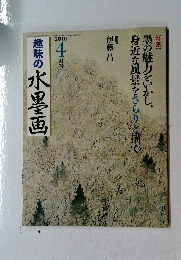 墨の魅力をいかし、
身近な風景をさらりと描く
伊藤昌
2010
4
月号
趣味の
水墨画